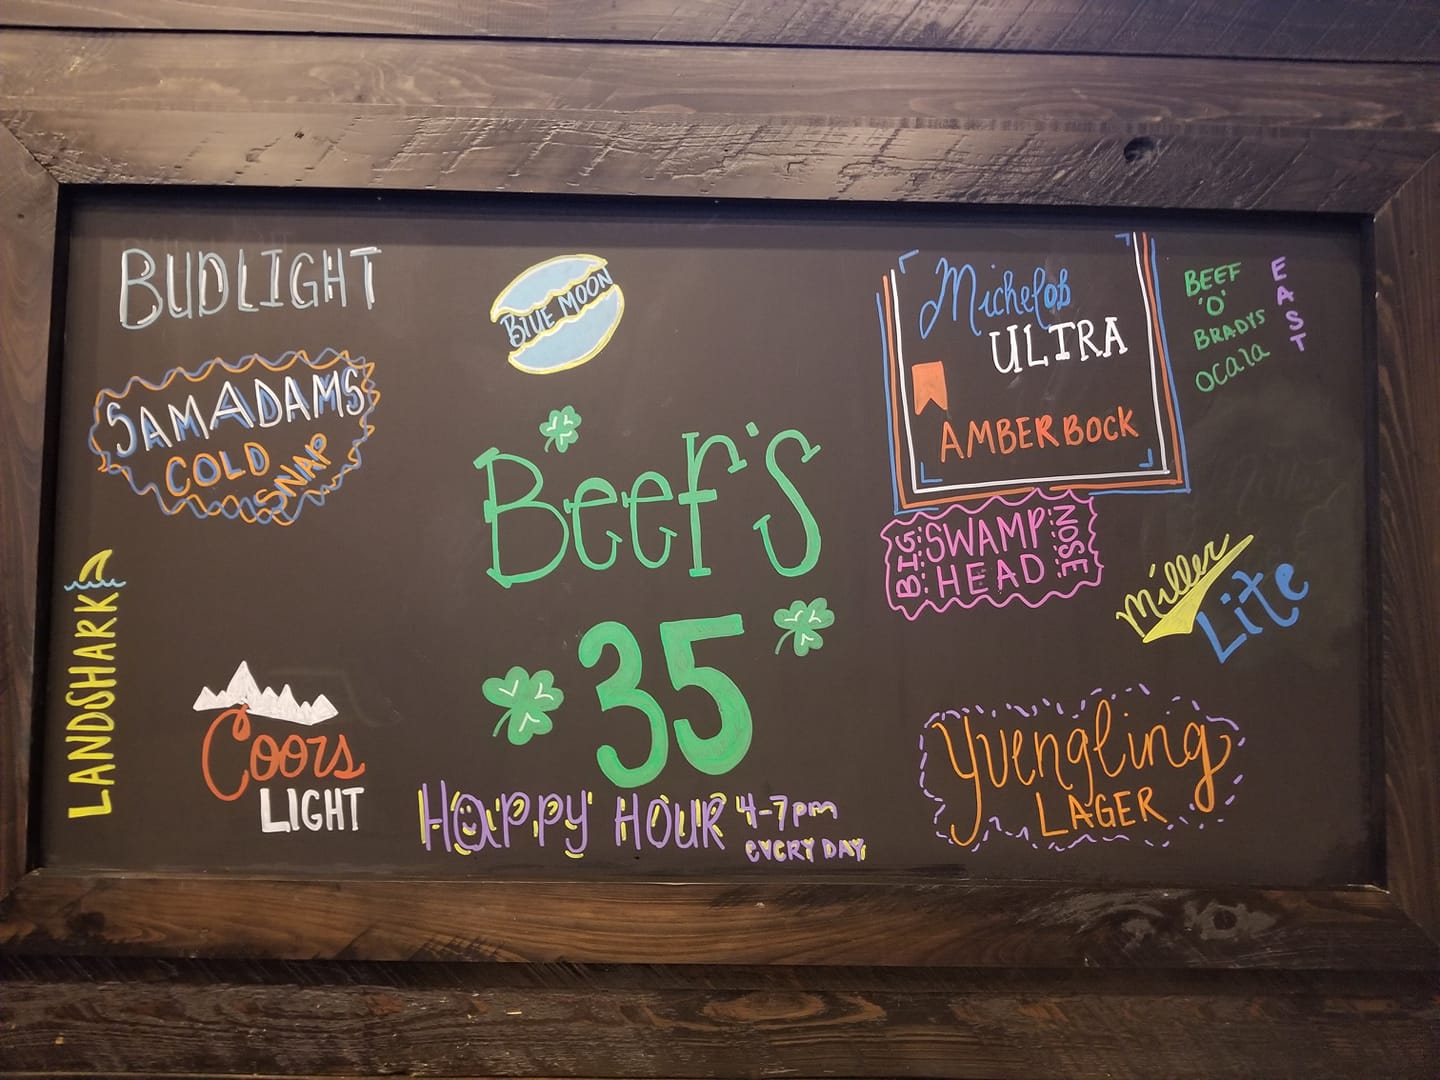 BUDLIGHT
SAMADAMS
COLD
SNAP
LANDSHARK
Coors
LIGHT
BLUE MOON
Beef's
35
HAPPY HOUR 4-7pm
EVERY DAY
Michelob
ULTRA
AMBER BOCK
BIG
SWAMP
HEAD
NOSE
BEEF
'O'
BRADYS
OCala
EAST
Miller
Lite
Yuengling
LAGER